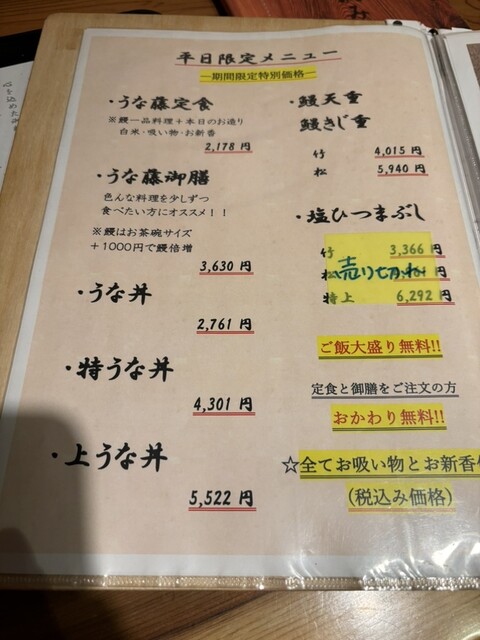 平日限定メニュー
―期間限定特別価格―
・うな藤定食
※鰻一品料理+本日のお造り
白米・吸い物・お新香
2,178 円
・うな藤御膳
色んな料理を少しずつ
食べたい方にオススメ!!
※鰻はお茶碗サイズ
+1000円で鰻倍増
3,630 円
・うな丼
2,761 円
・特うな丼
4,301 円
・上うな丼
5,522 円
・鰻天重
鰻きじ重
竹 4,015 円
松 5,940 円
・塩ひつまぶし
竹 3,366 円
売り切れ
松 円
特上 6,292 円
ご飯大盛り無料!!
定食と御膳をご注文の方
おかわり無料!!
☆全てお吸い物とお新香
(税込み価格)